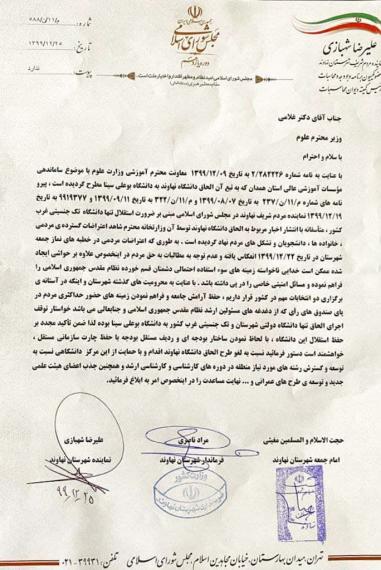 جمهوری اسلامی ایران
مجلس شورای اسلامی
دوره یازدهم
مجلس شورای اسلامی امید نظام و مظهر اقتدار و اختیار ملت است.
علیرضا شهبازی
نماینده مردم شریف شهرستان نهاوند
شماره:
تاریخ: ۱۳۹۹/۱۲/۲۵
پیوست: ندارد
جناب آقای دکتر غلامی
وزیر محترم علوم
با سلام و احترام
با عنایت به نامه شماره ۲/۲۸۲۲۲۶ به تاریخ ۱۳۹۹/۱۲/۰۹ معاونت محترم آموزشی وزارت علوم با موضوع ساماندهی
مؤسسات آموزشی عالی استان همدان که به تبع آن الحاق دانشگاه نهاوند به دانشگاه بوعلی سینا مطرح گردیده است ، پیرو
نامه های شماره ۱۱/ن/۲۳۷ به تاریخ ۱۳۹۹/۰۸/۰۷ و ۱۱/ن/۳۲۲ به تاریخ ۱۳۹۹/۰۹/۱۱ و 9919377 به تاریخ
۱۳۹۹/۱۲/۱۹ نماینده مردم شریف نهاوند در مجلس شورای اسلامی مبنی بر ضرورت استقلال تنها دانشگاه تک جنسیتی غرب
کشور ، متأسفانه با انتشار اخبار مربوط به الحاق دانشگاه نهاوند توسط آن وزارتخانه محترم شاهد اعتراضات گسترده ی مردمی
، خانواده ها ، دانشجویان و تشکل های مردم نهاد گردیده است . به طوری که اعتراضات مردمی در خطبه های نماز جمعه
شهرستان در تاریخ ۱۳۹۹/۱۲/۲۲ انعکاس یافته و عدم توجه به مطالبات به حق مردم در اینخصوص علاوه بر حواشی ایجاد
شده ممکن است خدایی ناخواسته زمینه های سوء استفاده احتمالی دشمنان قسم خورده نظام مقدس جمهوری اسلامی را
فراهم نموده و مسائل امنیتی خاصی را در پی داشته باشد . با عنایت به محرومیت های گذشته شهرستان و اینکه در آستانه ی
برگزاری دو انتخابات مهم در کشور قرار داریم ، حفظ آرامش جامعه و فراهم نمودن زمینه های حضور حداکثری مردم در
پای صندوق های رأی که از دغدغه های مسئولین ارشد نظام مقدس جمهوری اسلامی و جنابعالی می باشد خواستار توقف
اجرای الحاق تنها دانشگاه دولتی شهرستان و تک جنسیتی غرب کشور به دانشگاه بوعلی سینا بوده لذا ضمن تأکید مجدد بر
حفظ استقلال این دانشگاه ، با لحاظ نمودن ساختار بودجه ای و ردیف مستقل بودجه با حفظ چارت سازمانی مستقل ،
خواهشمند است دستور فرمائید نسبت به لغو طرح الحاق دانشگاه نهاوند اقدام و با حمایت از این مرکز دانشگاهی نسبت به
توسعه و گسترش رشته های مورد نیاز منطقه در دوره های کارشناسی و کارشناسی ارشد و همچنین جذب اعضای هیئت علمی
جدید و توسعه ی طرح های عمرانی و ... نهایت مساعدت را در اینخصوص امر به ابلاغ فرمائید.
حجت الاسلام و المسلمین مغیثی
امام جمعه شهرستان نهاوند
مراد ناصری
فرماندار شهرستان نهاوند
علیرضا شهبازی
نماینده شهرستان نهاوند
۹۹,۱۲,۲۵
وزارت کشور
تهران، میدان بهارستان، خیابان مجاهدین اسلام، مجلس شورای اسلامی تلفن: ۳۹۹۳۱-۰۲۱